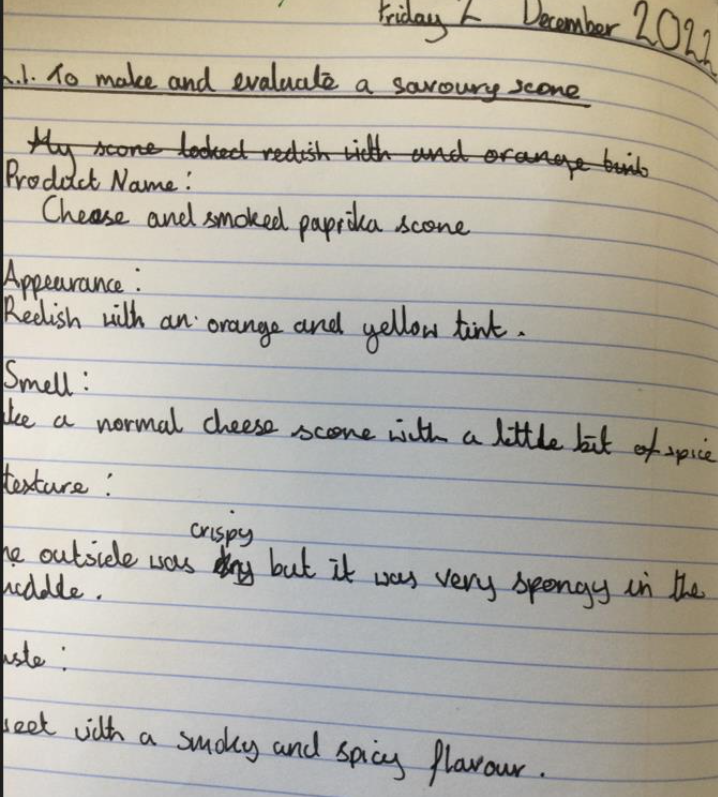 Friday 2 December 2022
.1. To make and evaluate a savoury scone
My scone looked redish with and orange
Product Name:
Cheese and smoked paprika scone
Appearance:
Redish with an orange and yellow tint.
Smell:
ke a normal cheese scone with a little bit of spice
texture:
crispy
he outside was dry but it was very spongy in the
middle.
aste:
seet with a smoky and spicy flavour.